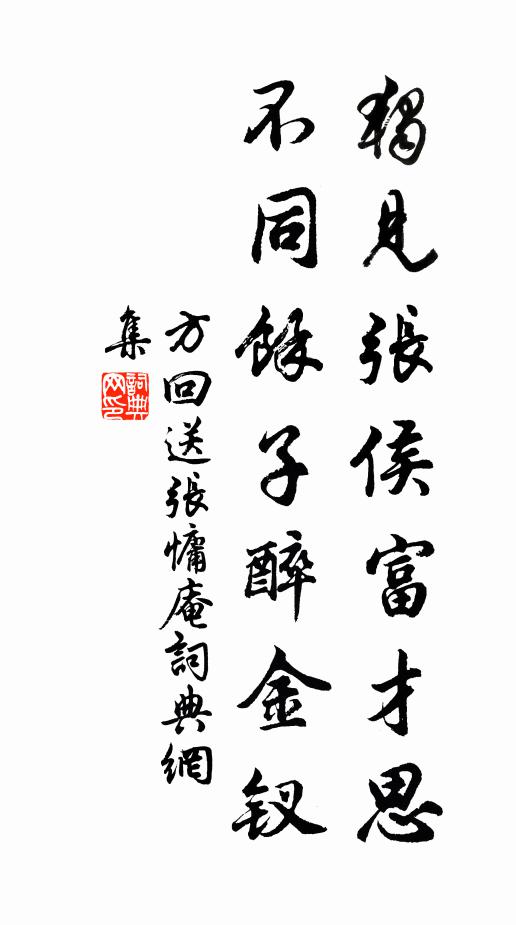 獨見張侯富才思
不同餘子醉金釵
方回送張慵庵詞典網
集
詞典网印